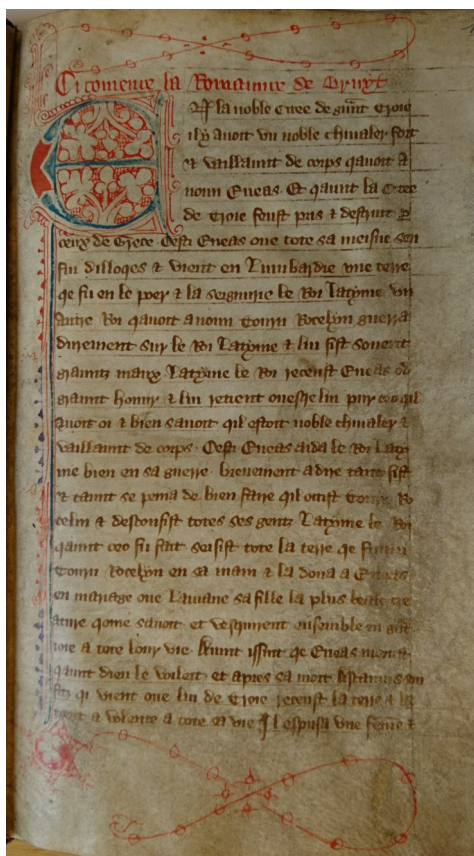 Ci comence la Romaunce de Bruyt
En la noble Citee de graunt Troie
il y avoit un noble chivaler fort
& vaillaunt de corps qavoit a
noun Eneas Et qaunt la Citee
de Troie feust pris & destruit p
ceux de Grece Cesti Eneas oue tote sa meisne sen
fui dilloqes & vient en Lumbardie une terre
qe fu en le poer & la seignurie le Roi Latyme un
autre Roi qavoit a noun Tourn Rocelyn guerra
durement sur le Roi Latyme & lui fist sovent
grauntz maux Latyme le Roi receust Eneas od
graunt honur & lui retient ouesqe lui pur ceo qil
avoit oi & bien savoit qil estoit noble chivaler &
vaillaunt de corps Cesti Eneas aida le Roi Laty
me bien en sa guerre brevement a dire taunt fist
& taunt se pena de bien faire qil occist Tourn Ro
celin & desconfist totes ses gentz Latyme le Roi
qaunt ceo fu fait seisist tote la terre qe fu
Tourn Rocelyn en sa main & la dona a Eneas
en mariage oue Lauiane sa fille la plus bele cre
ature qome savoit et vesquirent ensemble en gnt
ioie a tote lour vie Avint issint qe Eneas morust
qaunt dieu le voleit et apres sa mort Astanius son
fitz qi vient oue lui de Troie receust la terre & la
tient a volente a tote sa vie Il espusa une feme &